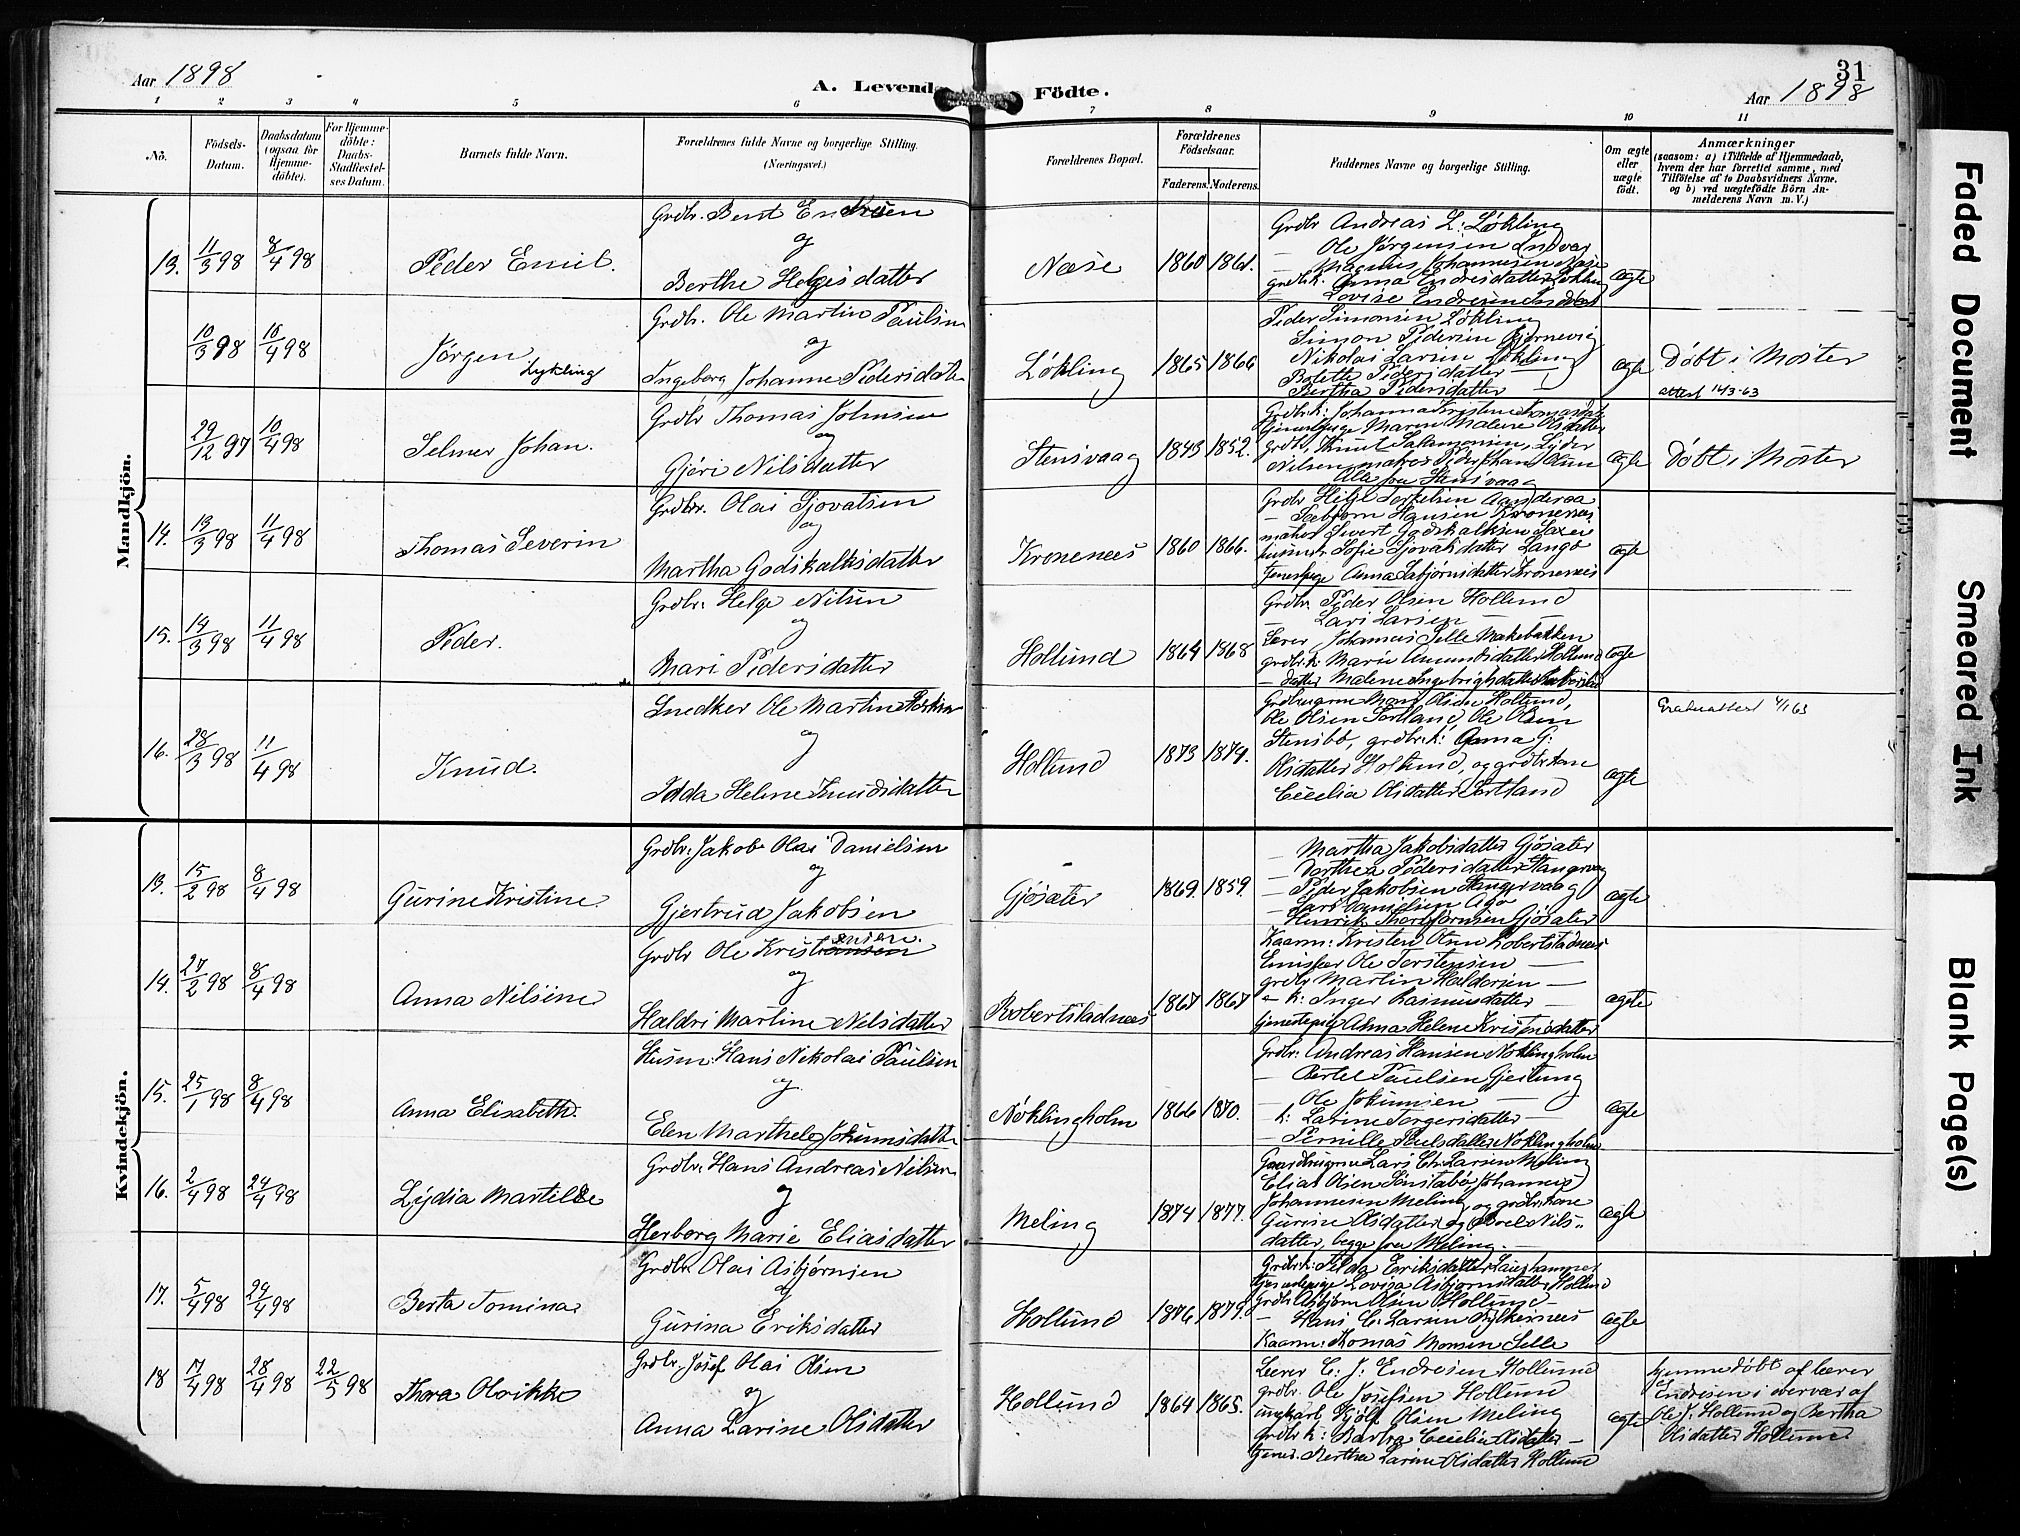 Aar 1898
A. Levende Födte.
31
Aar 1898
1 2 3 4 5 6 7 8 9 10 11
No.
Födsels-Datum.
Daabsdatum (ogsaa for Hjemme-döbte).
For Hjemme-döbte: Daabs-Stadfæstel-ses Datum.
Barnets fulde Navn.
Forældrenes fulde Navne og borgerlige Stilling. (Næringsvei.)
Forældrenes Bopæl.
Forældrenes Födselsaar.
Faderens. Moderens.
Faddernes Navne og borgerlige Stilling.
Om ægte eller uægte födt.
Anmærkninger
(saasom: a) i Tilfælde af Hjemmedaab, hvem der har forrettet samme, med Tilföielse af to Daabsvidners Navne, og b) ved uægtefödte Börn An-melderens Navn m. V.)
Mandkjön.
13. 11/3 98 8/4 98 Peder Emil.
Grdbr. Bent Endresen
og
Berthe Helgesdatter
Næse 1860 1861.
Grdbr Andreas L. Løkling
Ole Jørgensen Indvær
— Magnus Johannesen Næse
grdbrk. Anna Endresdatter Løkling
— Lovise Endresen Indvær
ægte
10/3 98 10/4 98 Jørgen Lykling
Grdbr. Ole Martin Paulsen
og
Ingeborg Johanne Pedersdatter
Løkling 1865 1866
Peder Simonsen Løkling
Simon Pedersen Bjørnevig
Nikolai Larsen Løkling
Bolette Pedersdatter —
Bertha Pedersdatter —
ægte Døbt i Moster
attest 14/3-63
29/12 97 10/4 98 Selmer Johan.
Grdbr Thomas Johnsen
og
Gjøri Nilsdatter
Stensvaag 1843 1852.
Grdbrk: Johanna Kristine Tomasdat.
tjenestepige Maren Malene Olsdatter
grdbr. Knut Salamonsen, Peder
Nilsen, Peder Johan
Alle fra Stensvaag
ægte Døbt i Moster
14. 13/3 98 11/4 98 Thomas Severin
Grdbr. Olai Sjovatsen
og
Martha Godskalksdatter
Kronenes 1860 1866.
Grdbr Helge Torkelsen Aanderaa
— Hansen Kronenes
Sivert Godskalksen
Sofie Sjovatsdatter Langø
Tjenestpige Anna Asbjørnsdatter Kronenes
ægte
15. 14/3 98 11/4 98 Peder.
Grdbr. Helge Nilsen
og
Mari Pedersdatter
Hollund 1864 1868
Grdbr. Peder Olsen Hollund
Lars Larsen —
Lærer Johannes Selle Mækebakken
grdbr.k. Marie Amundsdatter Hollund
— datter Malene Ingebrigtsdatter
ægte
16. 28/3 98 11/4 98 Knud.
Snedker Ole Martin
og
Edda Helene Knudsdatter
Hollund 1873 1879.
Grdbrugerne Mons Olsen Hollund,
Ole Olsen Fortland, Ole Olsen
Stensbø, grdbr.k: Anna G:
Olsdatter Hollund, og grdbr. kone
Cecelia Olsdatter Fortland
ægte 4/1 63
Kvindekjön.
13. 15/2 98 8/4 98 Gurine Kristine
Grdbr. Jakob Olai Danielsen
og
Gjertrud Jakobsen
Gjøsæter 1869. 1859.
— Martha Jakobsdatter Gjøsæter
— Dorthea Pedersdatter Stangervaag
— Peder Jakobsen Stangervaag
— Lars Danielsen Agø
Henrik Thorbjørnsen Gjøsæter
ægte
14. 27/2 98 8/4 98 Anna Nilsine
Grdbr Ole Kristensen
og
Haldri Martine Nilsdatter
Robertstadnees 1867 1867
Kaarm: Kristen Olsen Robertstadnees
Emissær Ole Torstensen —
grdbr Martin Haldorsen —
— k: Inger Rasmusdatter —
tjenestepig Anna Helene Kristensdatter
ægte
15. 25/1 98 8/4 98 Anna Elisabeth.
Husm: Hans Nikolai Paulsen
og
Elen Marthele Jokumsdatter
Nøklingholm 1866 1870.
Grdbr: Andreas Hansen Nøklingholm
— Bertel Paulsen Gjeitung
— Ole Jokumsen —
— k. Larine Torgersdatter —
— Pernille Paulsdatter Nøklingholm
ægte
16. 2/4 98 24/4 98 Lydia Martille
Grdbr. Hans Andreas Nilsen
og
Herborg Marie Eliasdatter
Meling 1874 1877.
Gaardbrugerne Lars Chr. Larsen Meling
Elias Olsen Sønstabø, Johannes
Johannesen Meling, og grdbr. kone
Gurine Olsdatter og Nils-
datter, begge fra Meling.
ægte
17. 5/4 98 24/4 98 Berta Tomina
Grdbr Olai Asbjørnsen
og
Gurina Eriksdatter
Hollund 1876 1879.
Grdbrk: Eriksdatter Laughammer
tjenestepige Lovisa Asbjørnsdatter Hollund
Grdbr. Asbjørn Olsen Hollund —
— Hans C. Larsen
Kaarm: Tomas Monsen Selle
ægte
18 17/4 98 28/4 98 22/5 98 Thora Olvikke
Grdbr. Josef Olai Olsen
og
Anna Larine Olsdatter
Hollund 1864 1865.
Lærer C. J. Endresen Hollund
grdbr. Ole Josefsen Hollund
ungkarl Kjølf Olsen Meling
grdbr k: Barbra Cecelia Olsdatter —
tjenes. Bertha Larine Olsdatter Hollund
ægte
hjemmedøbt af lærer
Endresen i overvær af
Ole J. Hollund og Bertha
Olsdatter Hollund
Faded Document
Smeared Ink
Blank Page(s)